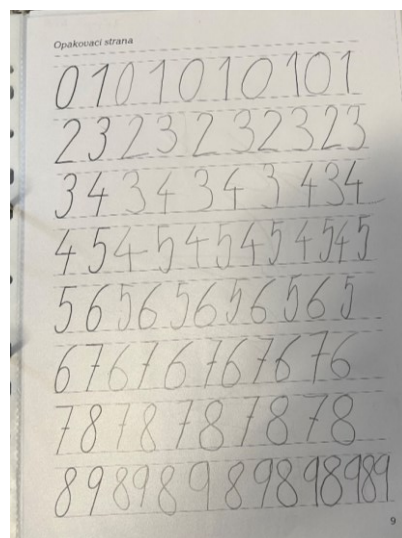 Opakovací strana
0 1 0 1 0 1 0 1 0 1
2 3 2 3 2 3 2 3 2 3
3 4 3 4 3 4 3 4 3 4
4 5 4 5 4 5 4 5 4 5 4 5
5 6 5 6 5 6 5 6 5 6 5
6 7 6 7 6 7 6 7 6 7 6
7 8 7 8 7 8 7 8 7 8
8 9 8 9 8 9 8 9 8 9 8 9 8 9
9